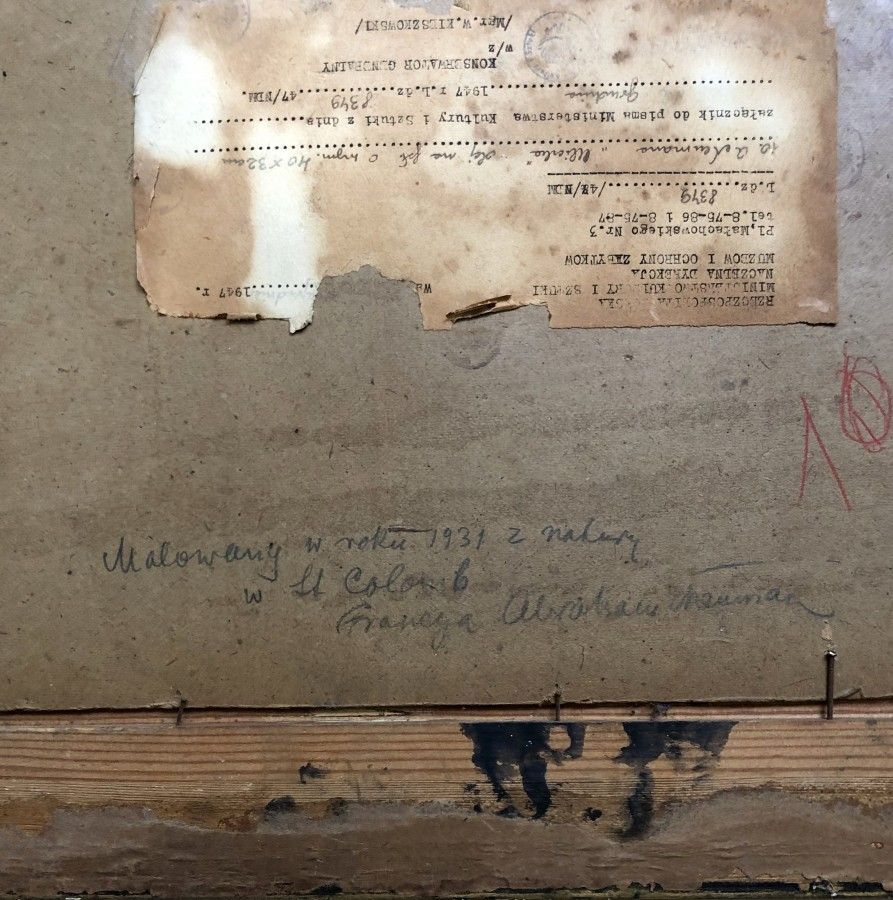 RZECZPOSPOLITA POLSKA
MINISTERSTWO KULTURY I SZTUKI
NACZELNA DYREKCJA
MUZEÓW I OCHRONY ZABYTKÓW
Pl, Małachowskiego Nr.3
tel.8-75-86 i 8-75-87
1947 r.
L.dz. 8349 /47/NDM
A Neumana "Ulica" olej na wym. 40 x 32 cm
załącznik do pisma Ministerstwa Kultury i Sztuki z dnia
grudnia 1947 r L.dz. 8349 47/NDM.
KONSERWATOR GENERALNY
w/z
/Mgr.W.KIESZKOWSKI/
10
Malowany w roku 1931 z natury
w St Colomb
Francya Abraham Neuman